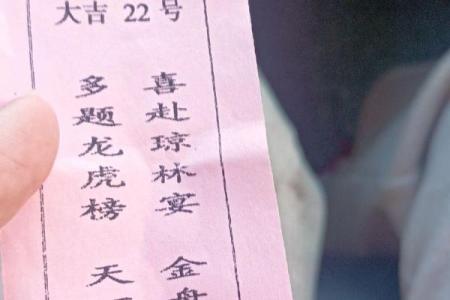 大吉 22 号
喜赴琼林宴 金
多题龙虎榜 天